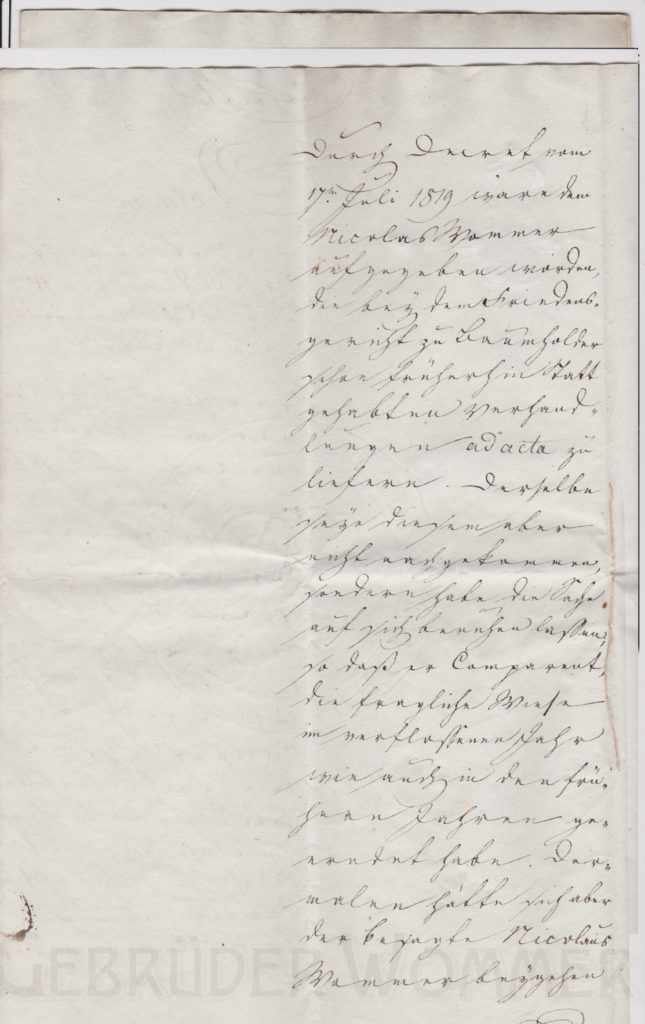 Durch Decret vom
17ten Juli 1819 wäre dem
Nicolas Wommer
aufgegeben worden,
die bey dem Friedens-
gericht zu Baumholder
schon früherhin statt
gehabten Verhand-
lungen ad acta zu
liefern. Derselbe
seye diesem aber
nicht nachgekommen,
sondern habe die Sache
auf sich beruhen lassen,
so daß er Comparent,
die fragliche Wiese
im verflossenen Jahr
wie auch in den frü-
hern Jahren ge-
erndet habe. Der-
malen hätte sich aber
der besagte Nicolaus
Wommer beygehen
GEBRÜDER WOMMER